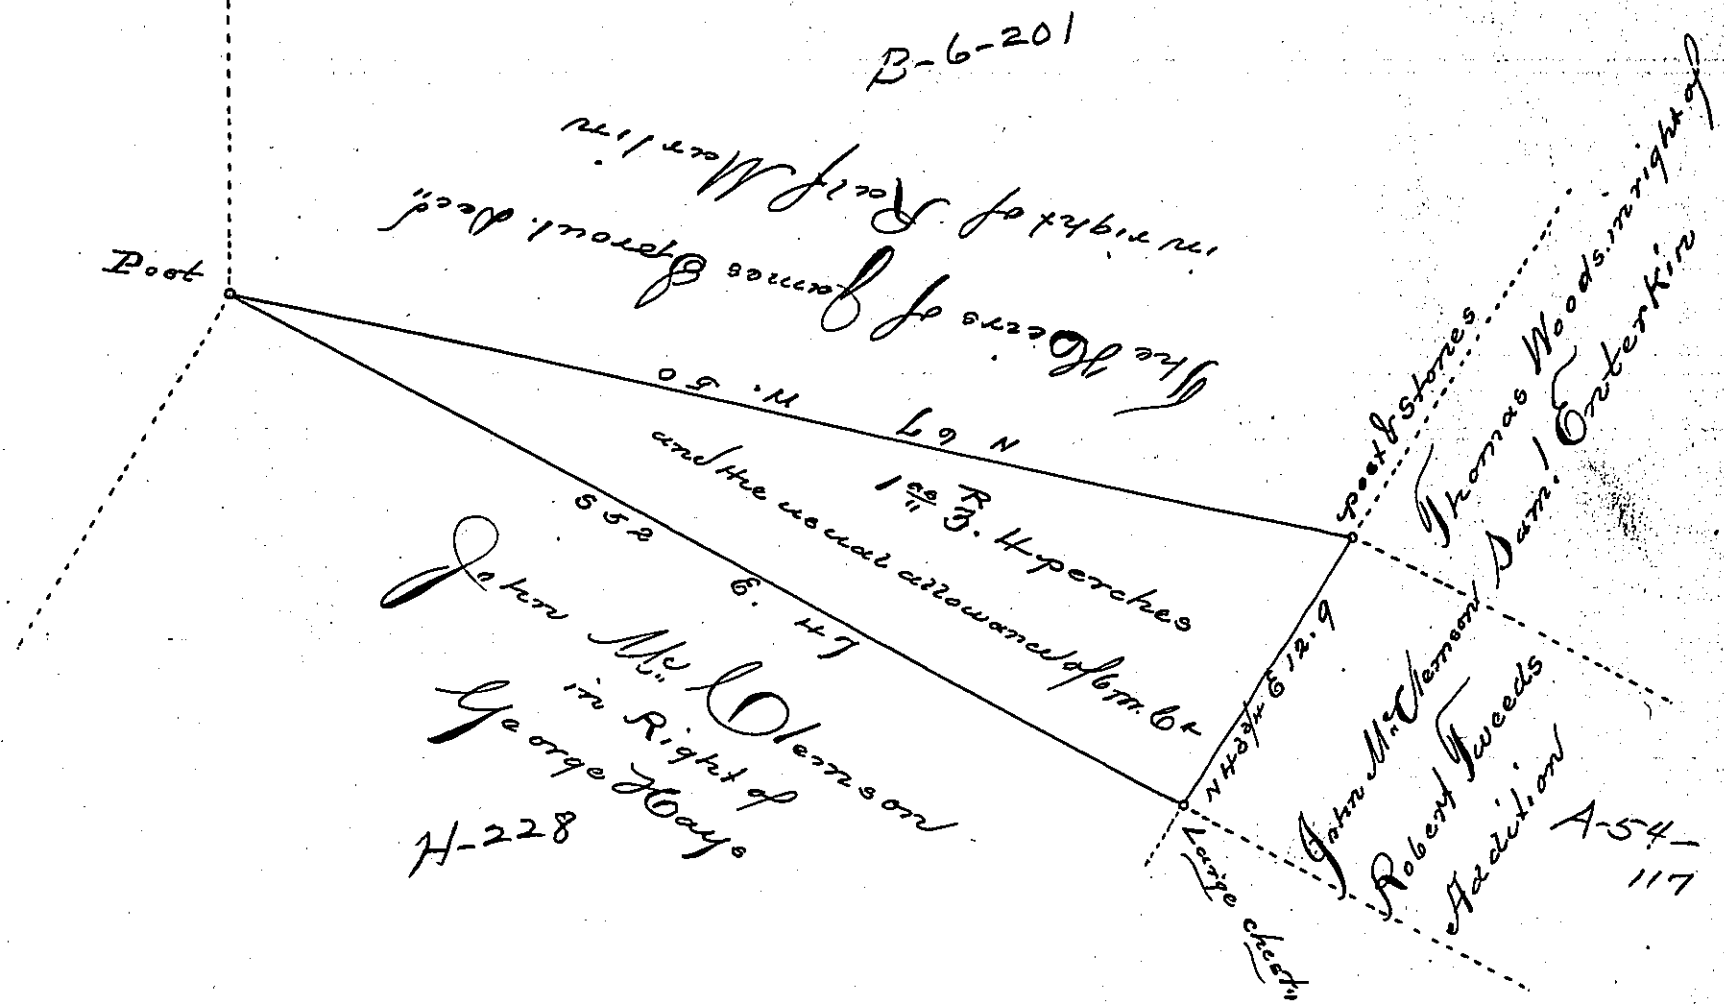 B-6-201
The Heirs of James Sproul. Decd
in right of Ralf Marlin
Post
N 67 W. 50
1 as 3. R 4 perches
and the usual allowance of 6 Pr. Ct
S 52 E. 47
John Mc Clemson
in Right of
George Hays
H-228
post & stones
N 43 3/4 E 12.9
Large chest"
Thomas Woods in right of
Sam.l Enterkin
John Mc Clemson
Robert Tweeds
Addition
A-54-
117